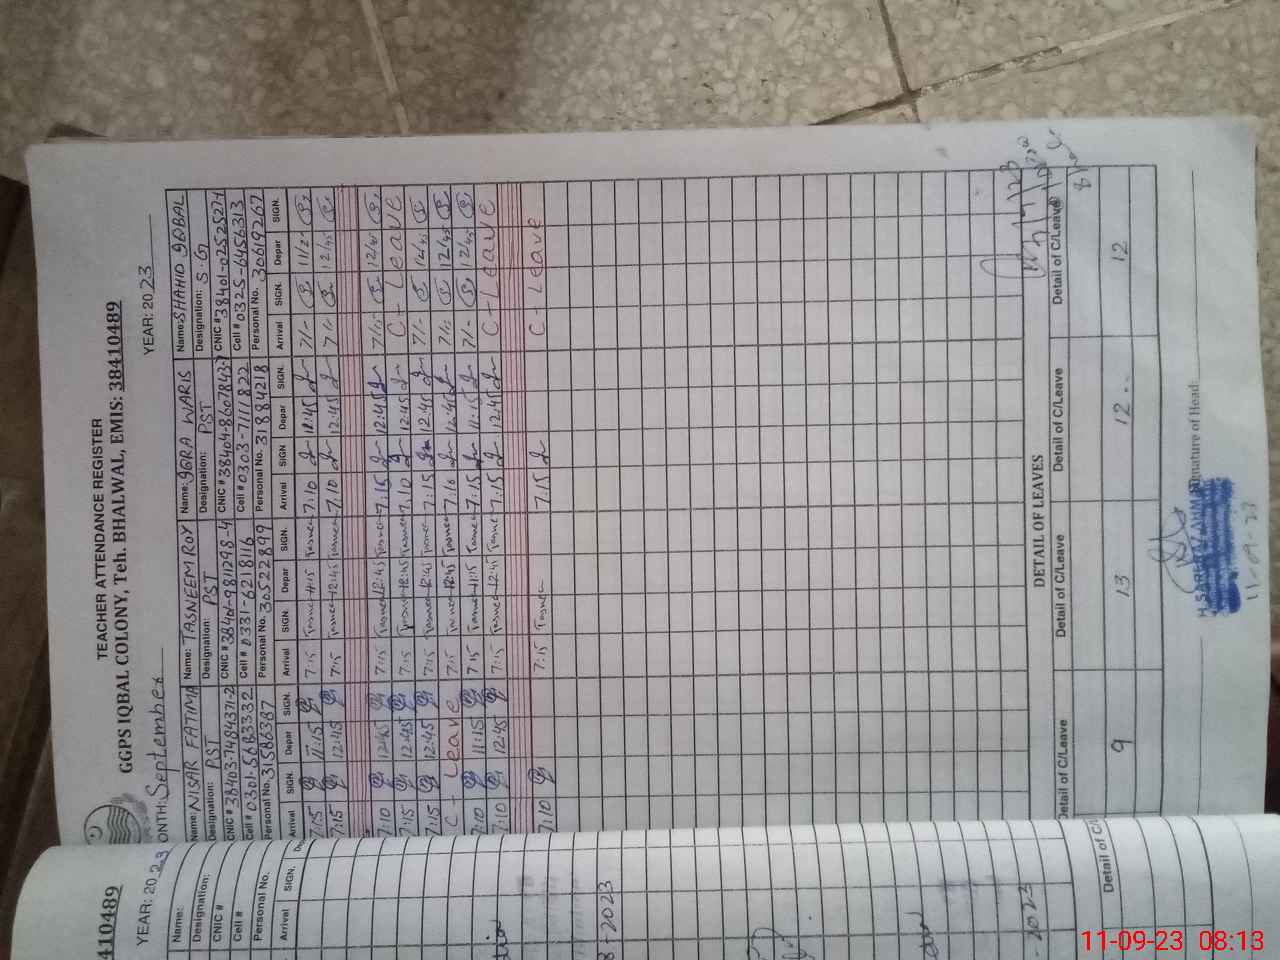 TEACHER ATTENDANCE REGISTER
GGPS IQBAL COLONY, Teh. BHALWAL, EMIS: 38410489
MONTH: September YEAR: 2023
Name: NISAR FATIMA Name: TASNEEM ROY Name: IQRA WARIS Name: SHAHID IQBAL
Designation: PST Designation: PST Designation: PST Designation: S G
CNIC # 38403-7484371-2 CNIC # 38401-9812198-4 CNIC # 38404-8667843-7 CNIC # 38401-0252527-1
Cell # 0301-5683332 Cell # 0331-6218116 Cell # 0303-7111822 Cell # 0325-6456313
Personal No. 31586387 Personal No. 30522899 Personal No. 31884218 Personal No. 30619267
Arrival SIGN. Depar SIGN. Arrival SIGN. Depar SIGN. Arrival SIGN Depar SIGN. Arrival SIGN. Depar SIGN.
7:15 11:15 7:15 Tasneem 11:15 Tasneem 7:10 7/-
7:15 12:45 7:15 Tasneem 12:45 Tasneem 7:10 12:45 7/- 12/45
7:10 12:45 7:15 Tasneem 12:45 Tasneem 7:15 12:45
7:15 12:45 7:15 Tasneem 12:45 Tasneem 7:10 12:45 C - Leave
7:15 12:45 7:15 Tasneem 12:45 Tasneem 7:15 12:45 7/- 12/45
C - Leave 7:15 Tasneem 12:45 Tasneem 7:10 12:45 12/45
7:10 11:15 7:15 Tasneem 11:15 Tasneem 7:15 11:15 7/-
7:10 12:45 7:15 Tasneem 12:45 Tasneem 7:15 12:45 C - Leave
7:10 7:15 Tasneem 7:15 C - Leave
DETAIL OF LEAVES
Detail of C/Leave Detail of C/Leave Detail of C/Leave Detail of C/Leave
9 13 12 12
Signature of Head:
11-09-23
410489
YEAR: 2023
Name:
Designation:
CNIC #
Cell #
Personal No.
Arrival SIGN.
-2023
-2023
11-09-23 08:13